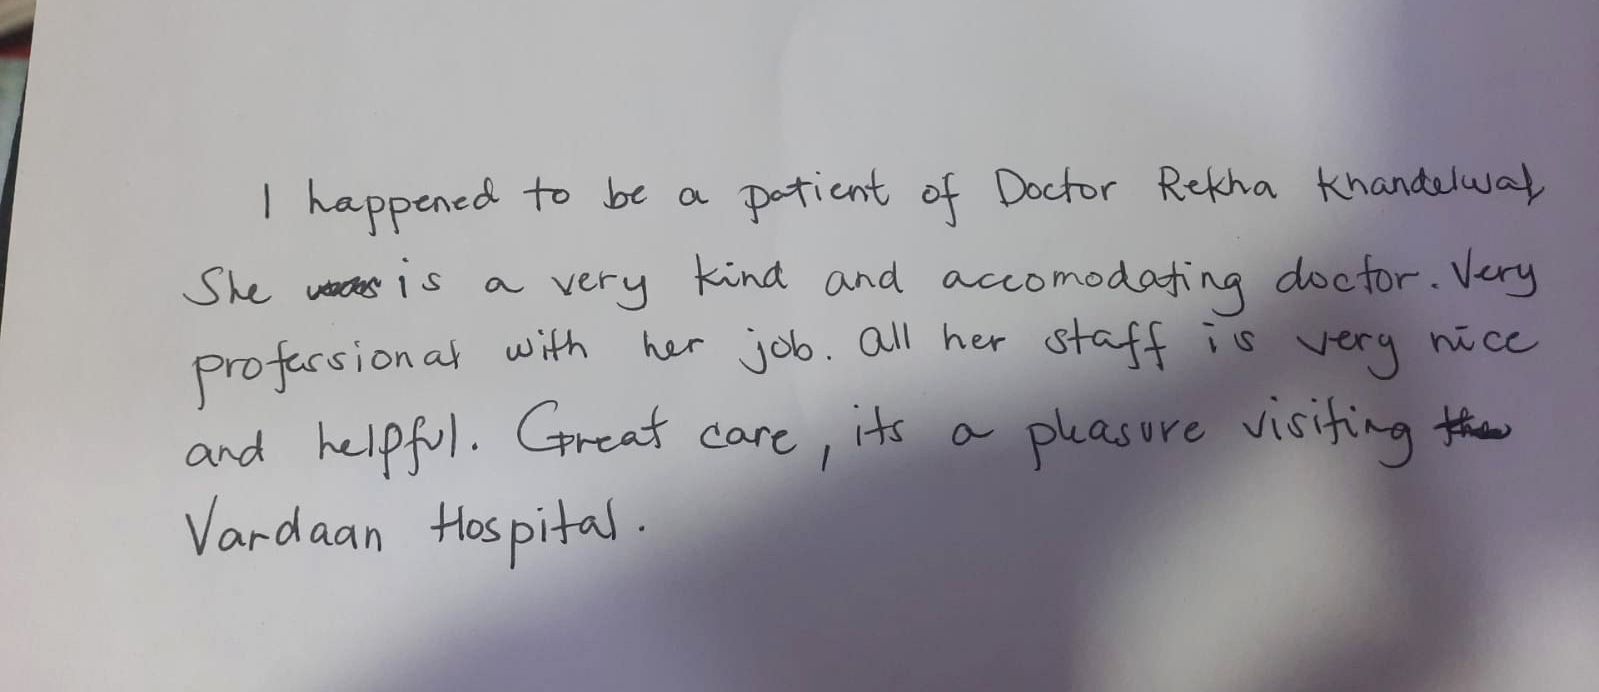 I happened to be a patient of Doctor Rekha Khandelwal
She is a very kind and accomodating doctor. Very
professional with her job. All her staff is very nice
and helpful. Great care, its a pleasure visiting
Vardaan Hospital.